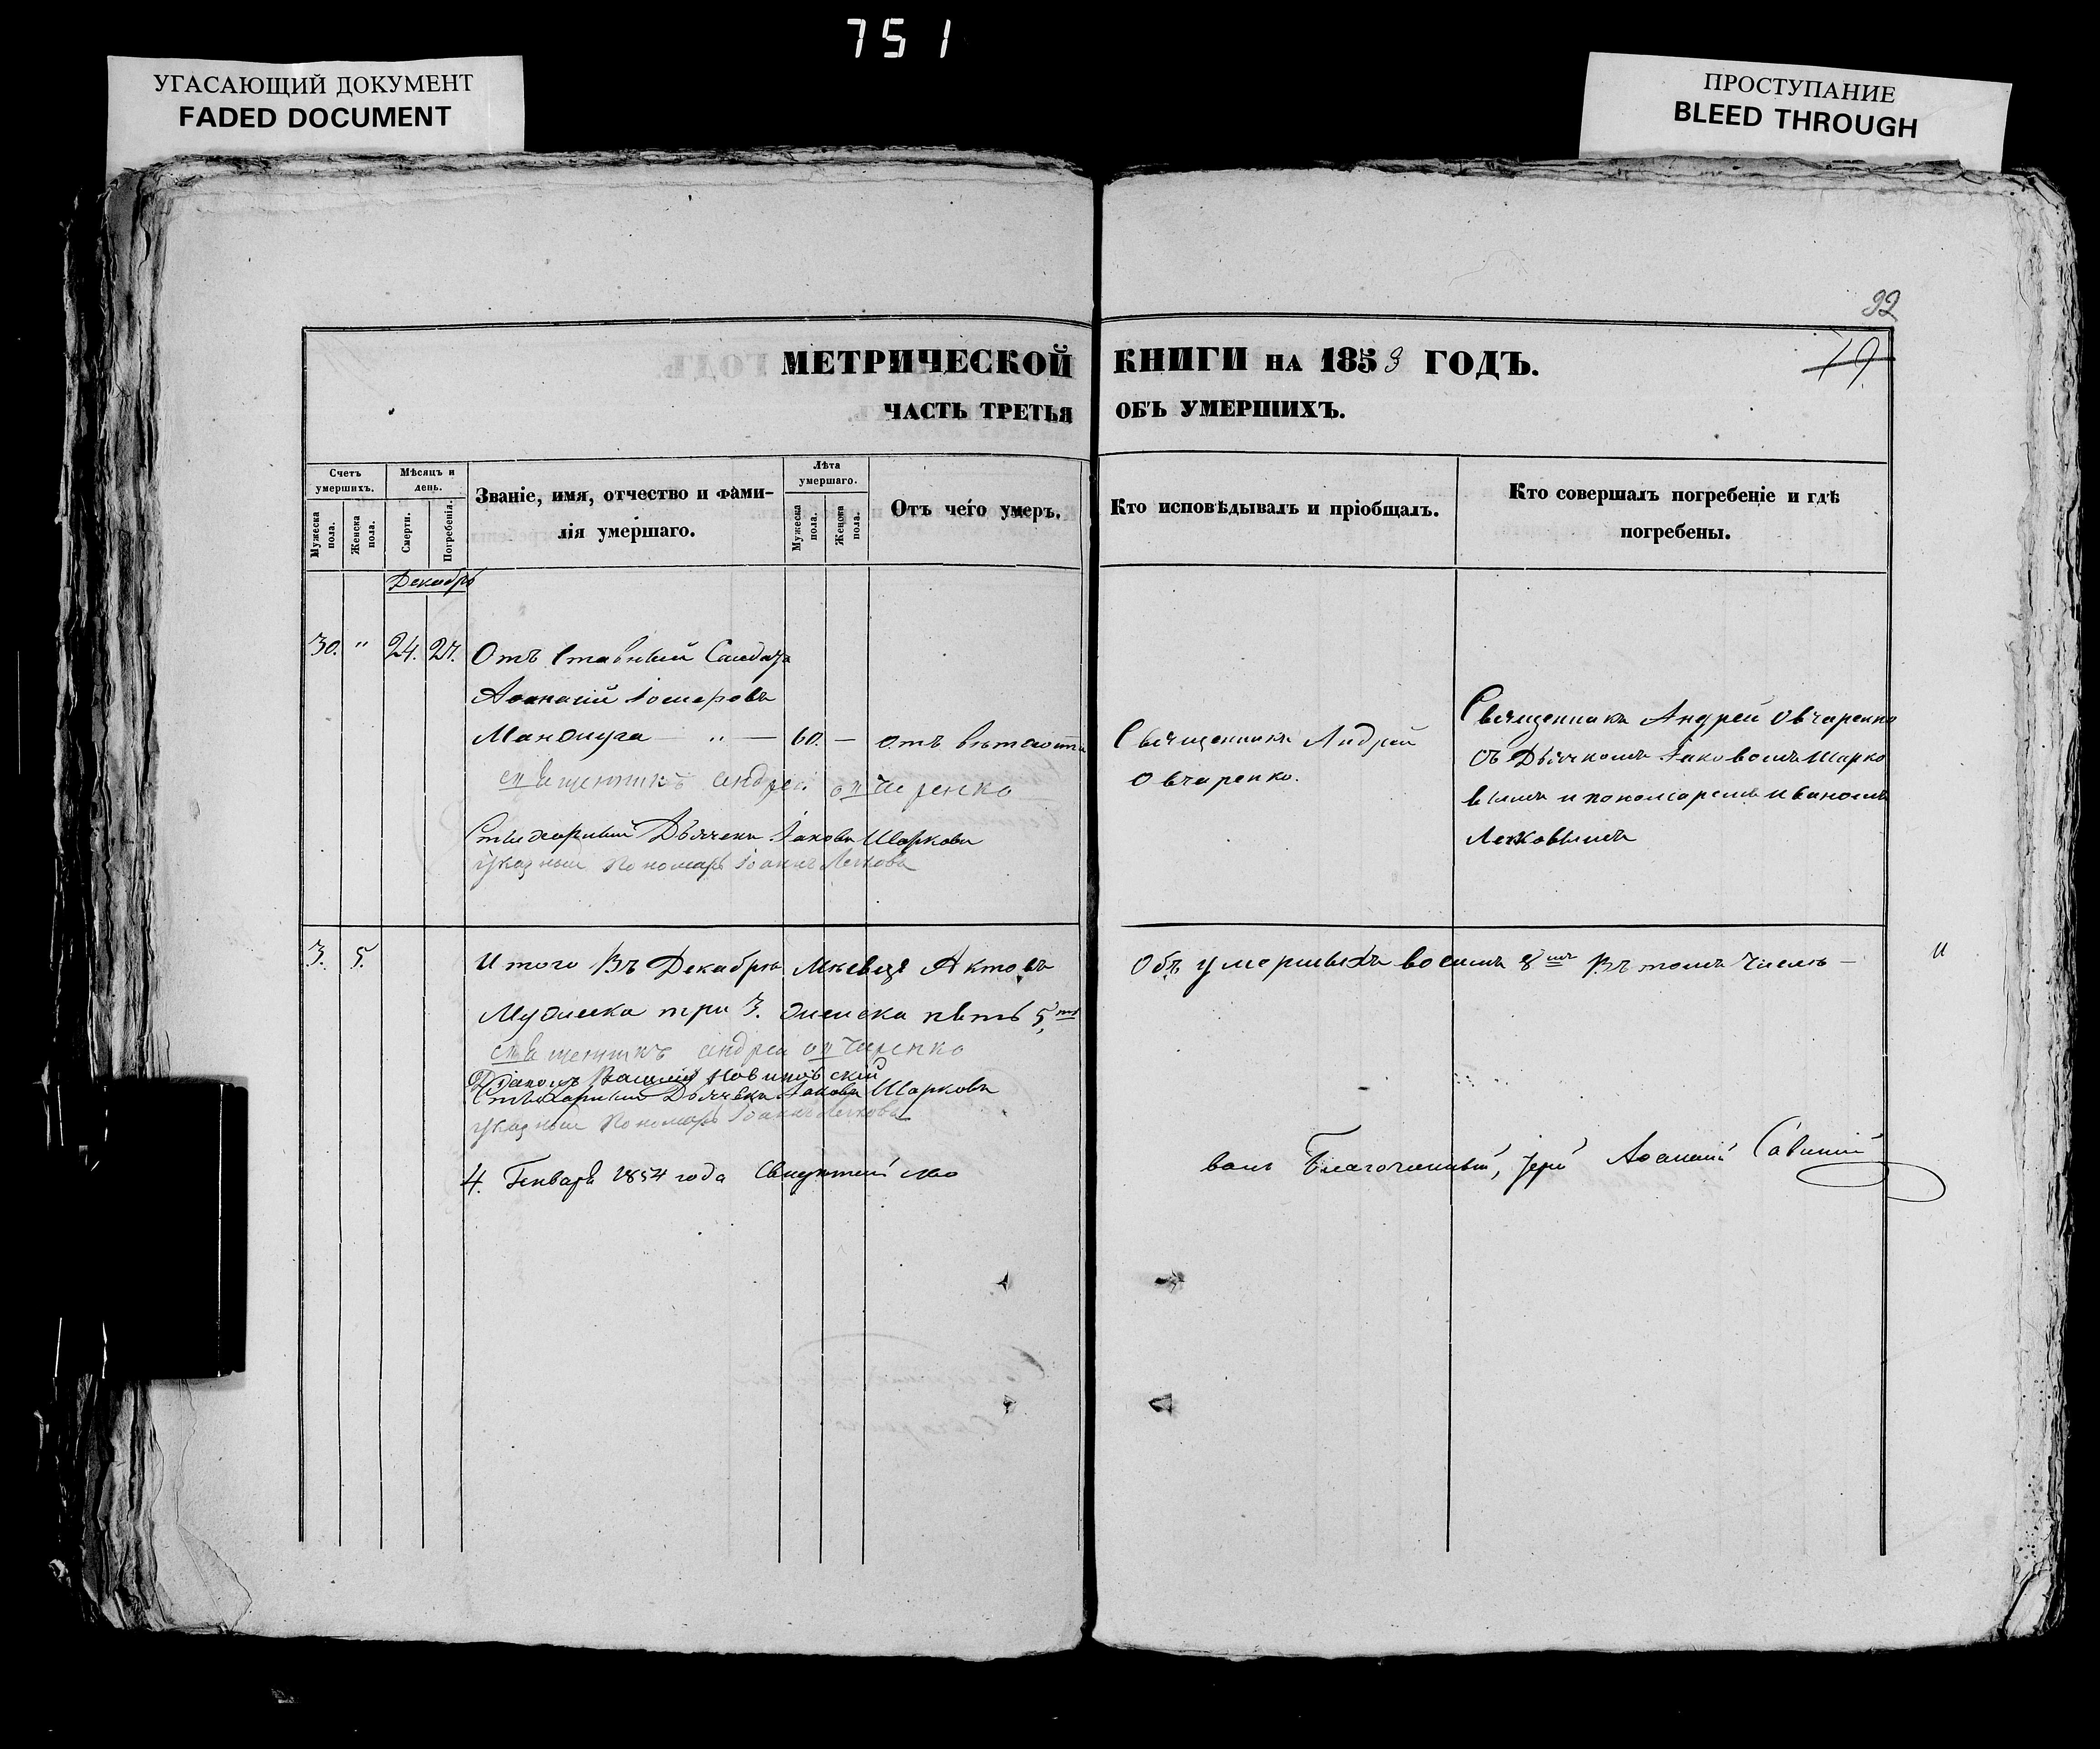 751
УГАСАЮЩИЙ ДОКУМЕНТ
FADED DOCUMENT
ПРОСТУПАНИЕ
BLEED THROUGH
92
79
МЕТРИЧЕСКОЙ КНИГИ НА 1853 ГОДЪ.
ЧАСТЬ ТРЕТЬЯ ОБЪ УМЕРШИХЪ.
Счетъ умершихъ.
Мужеска пола.
Женска пола.
Мѣсяцъ и день.
Смерти.
Погребенія.
Званіе, имя, отчество и фами-
лія умершаго.
Лѣта умершаго.
Мужеска пола.
Женска пола.
Отъ чего умеръ.
Кто исповѣдывалъ и пріобщалъ.
Кто совершалъ погребеніе и гдѣ
погребены.
Декабрь
30. " 24. 27. Отъ ставный Солдатъ
Аѳанасій
60. — отъ
Священникъ Андрей
Овчаренко.
Священникъ Андрей Овчаренко
съ Дьячкомъ Іаковомъ Шарко
вымъ и пономаремъ Иваномъ
Легковымъ
священникъ андрей овчаренко
Стихарный Дьячекъ Іаковъ Шарковъ
указный Пономарь Іоаннъ Легковъ
3. 5. Итого Въ Декабрѣ Мѣсяцѣ Актовъ
Объ умершихъ восемь 8 Въ томъ числѣ —
Мужеска три 3. женска пять 5
священникъ андрей овчаренко
Діаконъ Василій Новицовскій
Стихарный Дьячекъ Іаковъ Шарковъ
указный Пономарь Іоаннъ Легковъ
4. Генваря 1854 года Свидѣтельство
валъ Благочинный, Іерей Аѳанасій Савинскій